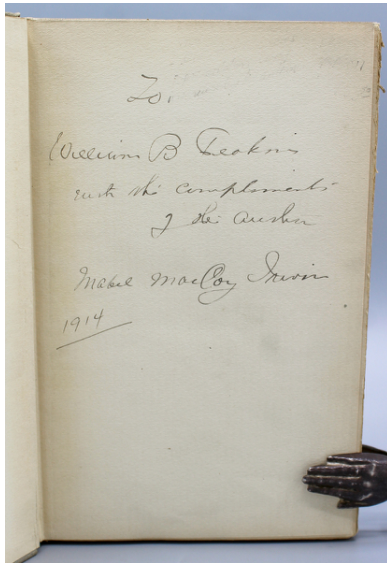 To.
William B Feakins
with the compliments
of the author
Mabel MacCoy Irwin
1914